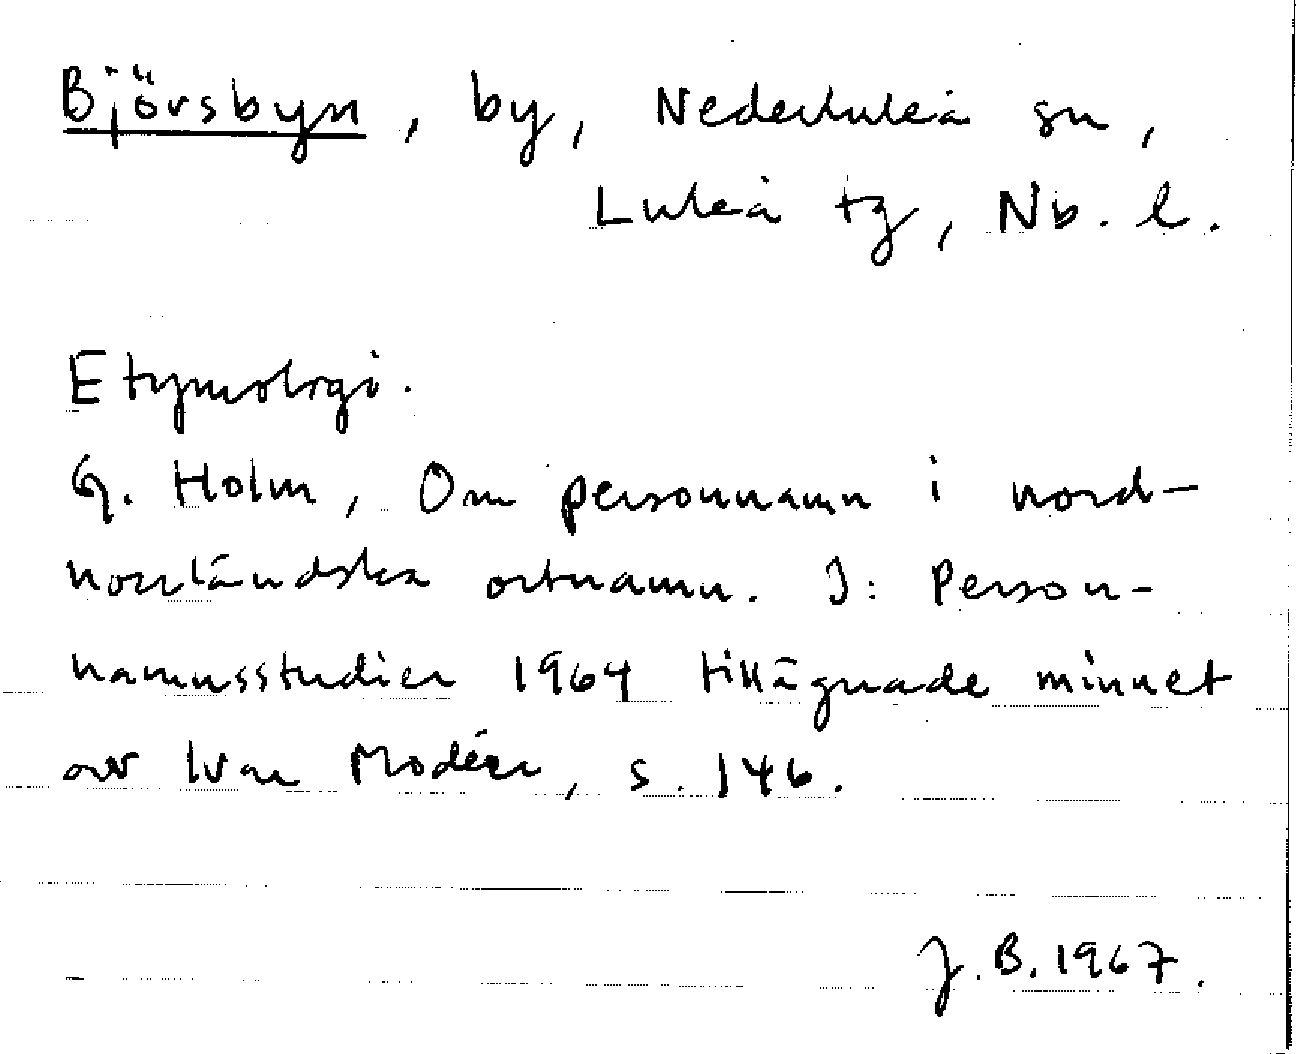 Björsbyn, by, Nederluleå sn,
Luleå tg, Nb. l.
Etymologi.
G. Holm, Om personnamn i nord-
norrländska ortnamn. I: Person-
namnsstudier 1964 tillägnade minnet
av Ivar Modéer, s. 146.
J.B. 1967.